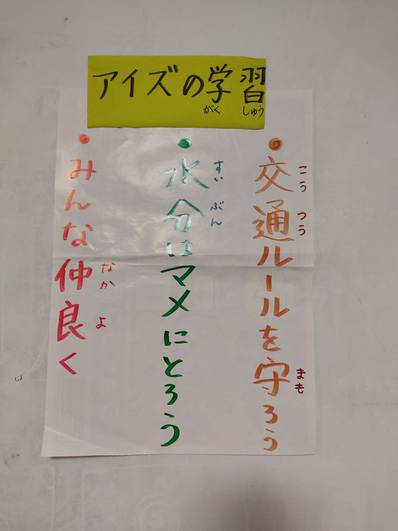 アイズの学習
がく しゅう
・交通ルールを守ろう
こう つう まも
・水分はマメにとろう
すい ぶん
・みんな仲良く
なか よ